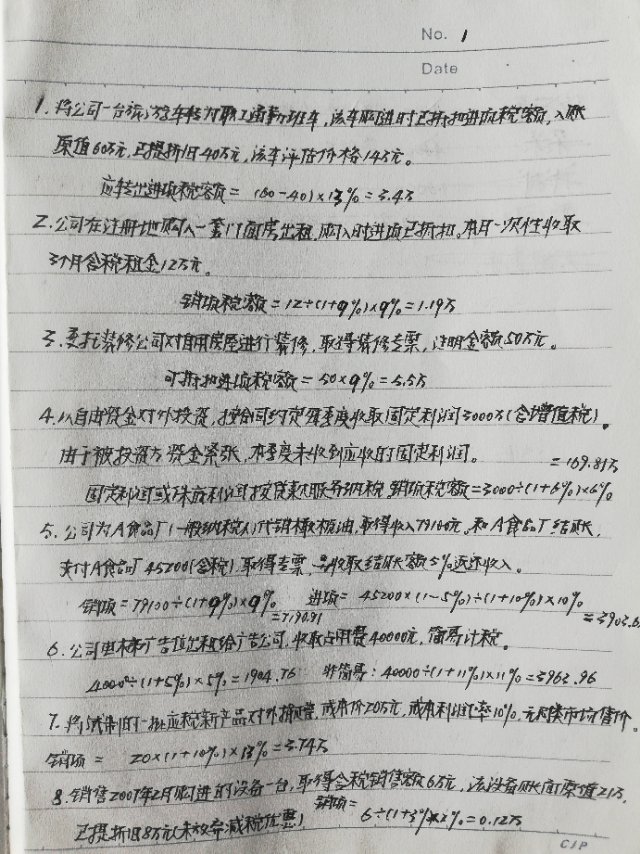 No. 1
Date
1. 将公司一台旅游车转为职工通勤班车,该车购进时已抵扣进项税额,入账
原值60万元,已提折旧40万元,该车评估价格14万元。
应转出进项税额=(60-40)×13%=3.4万
2. 公司在注册地购入一套门面房出租,购入时进项已抵扣。本月一次性收取
3个月含税租金12万元。
销项税额=12÷(1+9%)×9%=1.19万
3. 委托装修公司对自用房屋进行装修,取得装修专票,注明金额50万元。
可抵扣进项税额=50×9%=5.5万
4. 以自由资金对外投资,按合同约定每季度收取固定利润3000万(含增值税)。
由于被投资方资金紧张,本季度未收到应收的固定利润。 =169.81万
固定利润或保底利润按贷款服务纳税 销项税额=3000÷(1+6%)×6%
5. 公司为A食品厂(一般纳税人)代销橄榄油,取得收入79100元。和A食品厂结账,
支付A食品厂45200(含税),取得专票, 收取结账额5%返还收入。
销项=79100÷(1+9%)×9% 进项=45200×(1-5%)÷(1+10%)×10%
=7190.91 =3903.6
6. 公司电梯广告位出租给广告公司,收取占用费40000元,简易计税。
40000÷(1+5%)×5%=1904.76 非简易:40000÷(1+11%)×11%=3963.96
7. 将试制的一批应税新产品对外捐赠,成本价20万元,成本利润率10%,无同类市场售价。
销项= 20×(1+10%)×13%=3.74万
8. 销售2007年2月购进的设备一台,取得含税销售额6万元,该设备账面原值21万,
已提折旧8万元(未放弃减税优惠) 销项= 6÷(1+3%)×2%=0.12万
CJP